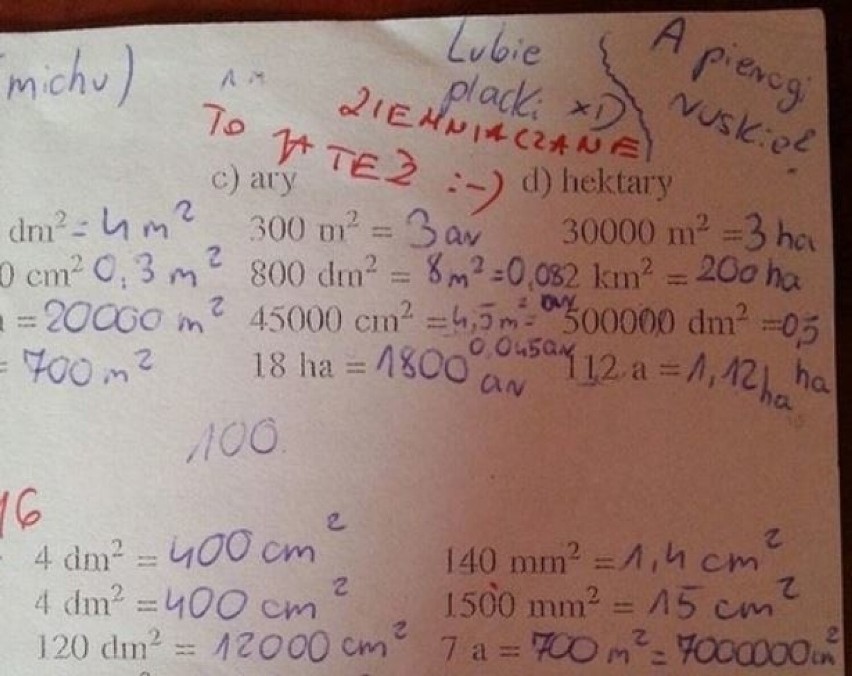 michu)
Lubie
placki xD
A pierogi
ruskie?
TO
JA TEŻ :-)
ZIEMNIACZANE
c) ary
d) hektary
dm² = 4 m²
300 m² = 3 ar
30000 m² = 3 ha
0 cm² 0,3 m²
800 dm² = 8 m² = 0,08
2 km² = 200 ha
= 20000 m²
45000 cm² = 4,5 m² = 0,045 ar
500000 dm² = 0,5 ha
= 700 m²
18 ha = 1800 ar
112 a = 1,12 ha
100
16
4 dm² = 400 cm²
140 mm² = 1,4 cm²
4 dm² = 400 cm²
1500 mm² = 15 cm²
120 dm² = 12000 cm²
7 a = 700 m² = 7000000 cm²